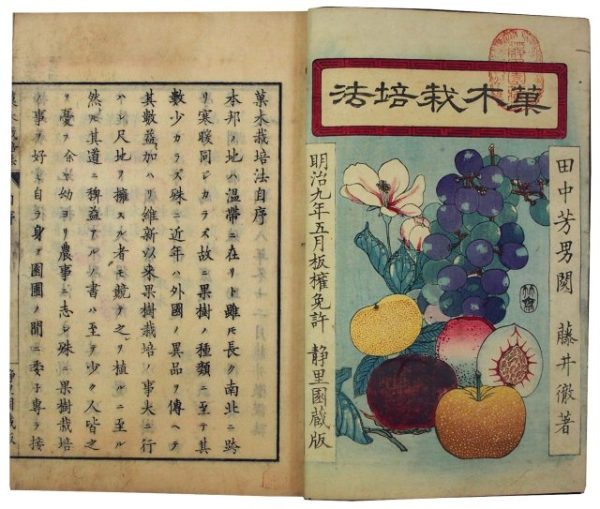 菓木栽培法
田中芳男閲 藤井徹著
明治九年五月板權免許 靜里園藏版
菓木栽培法自序
本邦ノ地ハ温帶ニ在リト雖𪜈長ク南北ニ跨
リ寒暖同シカラス故ニ果樹ノ種類ニ至テ其
數少カラズ殊ニ近年ハ外國ノ異品ヲ傳ヘテ
其數益加ハリ維新以来果樹栽培ノ事大ニ行
ハレ尺地ヲ擁スル者モ競テ之ヲ植ルニ至ル
然𪜈其道ニ稗益アルノ書ハ至テ少ク人皆之
ヲ憂フ余幼ヨリ農事ニ志シ殊ニ果樹栽培
ノ事ヲ好ミ自ラ身ヲ園圃ノ間ニ委子專ラ接